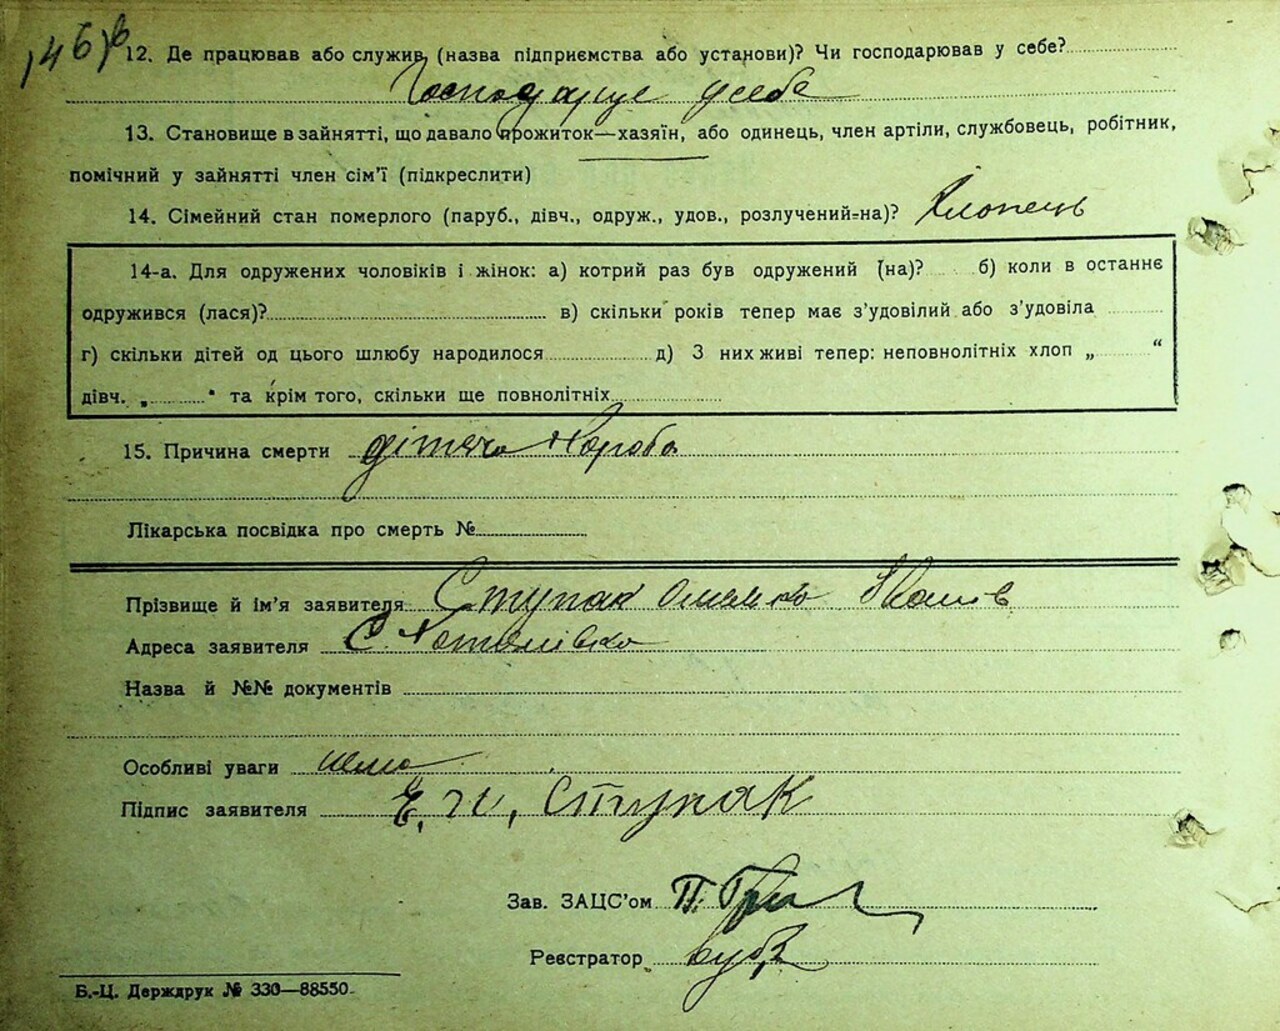 146 в
12. Де працював або служив (назва підприємства або установи)? Чи господарював у себе?
Господарує у себе
13. Становище в зайнятті, що давало прожиток—хазяїн, або одинець, член артіли, службовець, робітник,
помічний у зайнятті член сім'ї (підкреслити)
14. Сімейний стан померлого (паруб., дівч., одруж., удов., розлучений-на)? Хлопець
14-а. Для одружених чоловіків і жінок: а) котрий раз був одружений (на)? б) коли в останнє
одружився (лася)? в) скільки років тепер має з'удовілий або з'удовіла
г) скільки дітей од цього шлюбу народилося д) З них живі тепер: неповнолітніх хлоп „ “
дівч. „ " та крім того, скільки ще повнолітніх
15. Причина смерти дітяча хороба
Лікарська посвідка про смерть №
Прізвище й ім'я заявителя Ступак
Адреса заявителя С.
Назва й №№ документів
Особливі уваги нема
Підпис заявителя Ступак
Зав. ЗАЦС'ом П.
Реєстратор
Б.-Ц. Держдрук № 330—88550